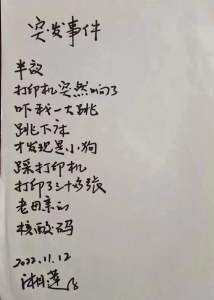 突发事件
半夜
打印机突然响了
吓我一大跳
跳下床
才发现是小狗
踩打印机
打印了三十多張
老母亲的
核酸码
2022.11.12